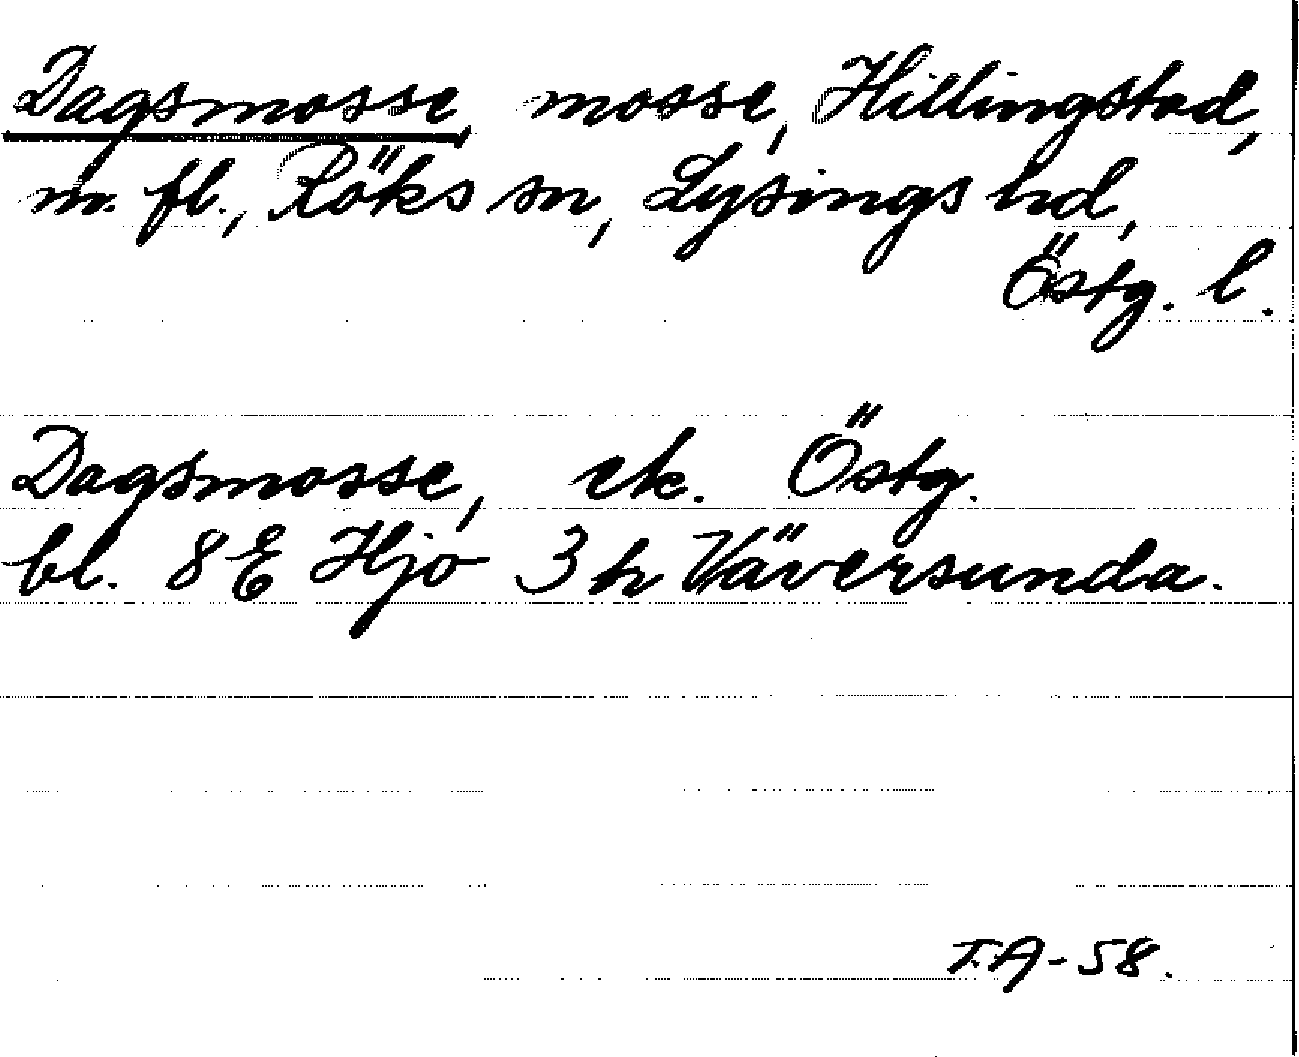 Dagsmosse, mosse, Hillingstad,
m. fl., Röks sn, Lysings hd,
Östg. l.
Dagsmosse, ek. Östg.
bl. 8E Hjo 3h Väversunda.
T.A-58.